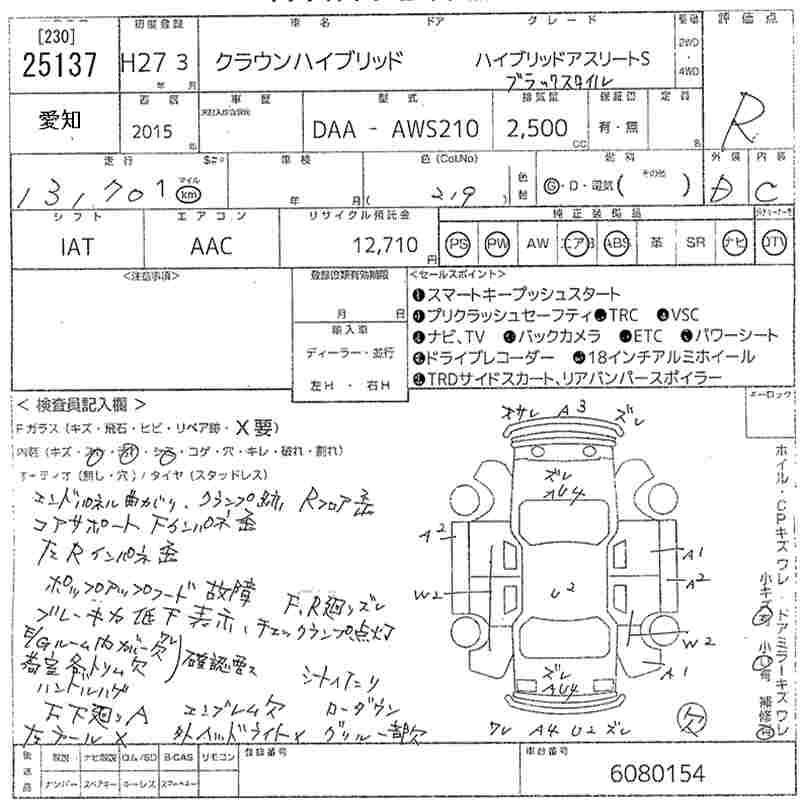 [230]
25137
初度登録
H27 3
年 月
車名 ドア グレード
クラウンハイブリッド ハイブリッドアスリートS
ブラックスタイル
2WD
・
4WD
評価点
R
愛知
2015
車歴
型式
DAA - AWS210
排気量
2,500
CC
保証書
有・無
定員
名
走行
131,701
マイル
km
車検
年 月
色(Col.No)
( 219 )
色替
燃料
G・D・電気( その他 )
外装
D
内装
C
シフト
IAT
エアコン
AAC
リサイクル預託金
12,710
円
純正装備品
PS PW AW エアB ABS 革 SR ナビ DTV
<注意事項>
登録書類有効期限
月 日
輸入車
ディーラー・並行
左H ・ 右H
<セールスポイント>
●スマートキープッシュスタート
●プリクラッシュセーフティ●TRC ●VSC
●ナビ、TV ●バックカメラ ●ETC ●パワーシート
●ドライブレコーダー ●18インチアルミホイール
●TRDサイドスカート、リアバンパースポイラー
キーロック
< 検査員記入欄 >
Fガラス(キズ・飛石・ヒビ・リペア跡・X要)
内装(キズ・スレ・汚れ・シミ・コゲ・穴・キレ・破れ・割れ)
オーディオ(無し・穴)/タイヤ(スタッドレス)
エンドパネル曲がり、クランプ跡、Rフロア歪
コアサポート Fインパネ歪
左Rインパネ歪
ポップアップフード故障 F、R廻リズレ
ブレーキ力低下表示、チェックランプ点灯
E/Gルーム内カバー欠
確認要ス
ハンドルハゲ
F下廻リA エンブレム欠 ローダウン
グリル一部欠
ズレ A3 ズレ
ズレ
AU4
A2
A1
W2
A2
U2
W2
A1
ズレ
AU4
ワレ A4 U2 ズレ
欠
ホイル・CPキズワレ ドアミラーキズワレ
後送品
取説 ナビ取説 B-CAS リモコン
ナンバー スペアキー キーレス スマートキー
登録番号
車台番号
6080154